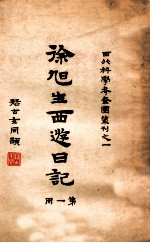 西北科學考查團叢刊之一
徐旭生西遊日記
第一冊
疑古玄同題